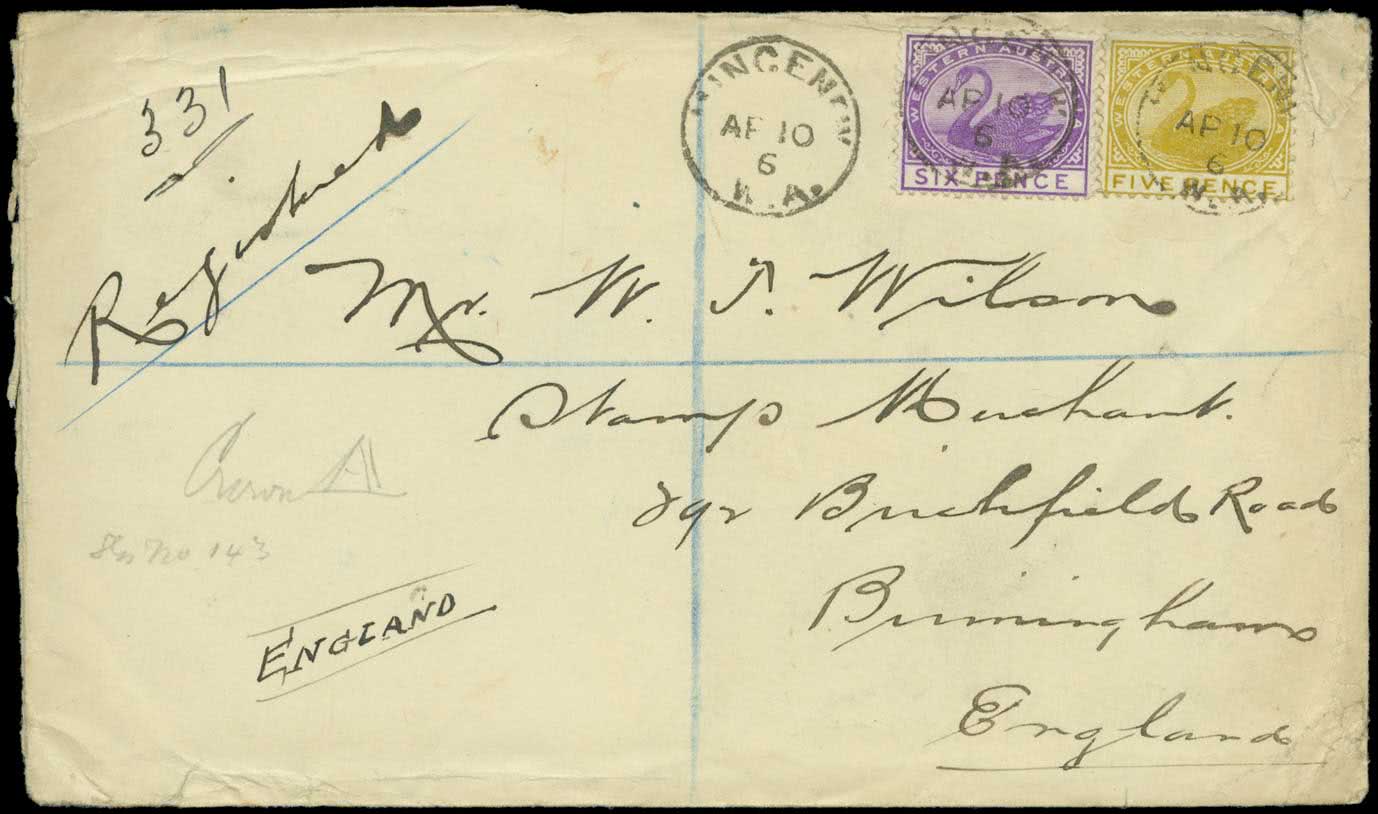 331
Registered
AP 10
6
W.A.
WESTERN AUSTRALIA
AP 10
6
SIX PENCE
WESTERN AUSTRALIA
AP 10
6
FIVE PENCE
Mr. W. T. Wilson
Stamp Merchant.
292 Birchfield Road
Birmingham
England
Crown A
No. 143
ENGLAND